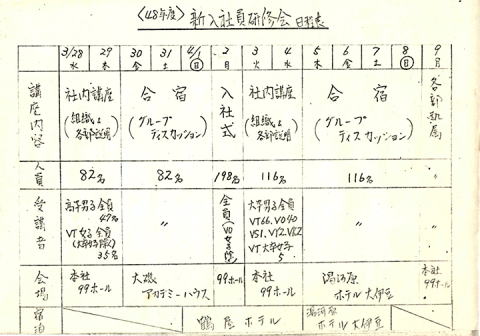 〈48年度〉 新入社員研修会 日程表
3/28 29 30 31 4/1 2 3 4 5 6 7 8 9
水 木 金 土 ㊐ 月 火 水 木 金 土 ㊐ 月
講座内容
社内講座
(組織&
各部説明)
合宿
(グループ
ディスカッション)
入社式
社内講座
(組織&
各部説明)
合宿
(グループ
ディスカッション)
各部配属
人員 82名 82名 198名 116名 116名
受講者
高卒男子全員
47名
VT女子全員
(大卒女子除)
35名
〃
全員(VO女子除)
大卒男子全員
VT66、VO40
VS1、VY2、VE2
VT大卒女子
5
〃
会場
本社
99ホール
大磯
アカデミーハウス
99ホール
本社
99ホール
湯河原
ホテル大伊豆
本社
99ホール
宿泊
鶴屋ホテル
湯河原
ホテル大伊豆